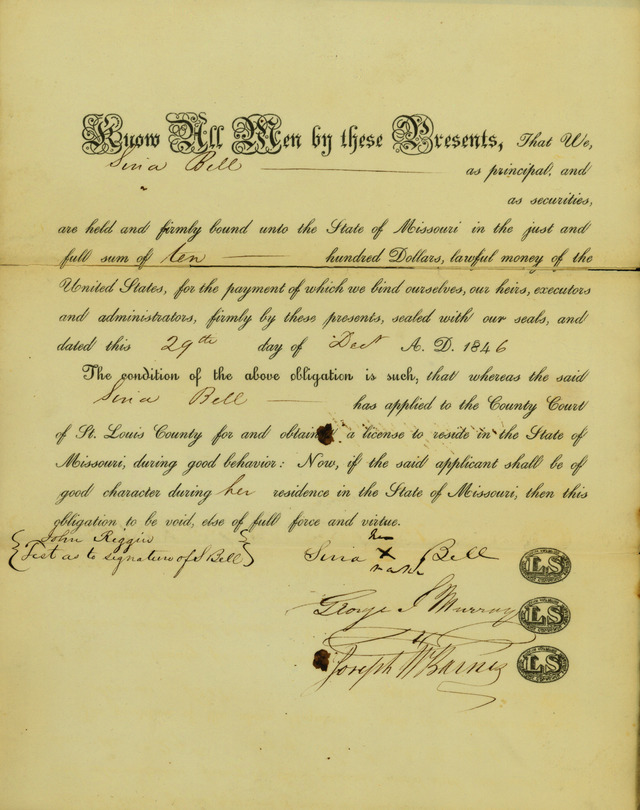 Know All Men by these Presents, That We,
Siria Bell as principal, and
as securities,
are held and firmly bound unto the State of Missouri in the just and
full sum of ten hundred Dollars, lawful money of the
United States, for the payment of which we bind ourselves, our heirs, executors
and administrators, firmly by these presents, sealed with our seals, and
dated this 29th day of Dect A. D. 1846
The condition of the above obligation is such, that whereas the said
Siria Bell has applied to the County Court
of St. Louis County for and obtained a license to reside in the State of
Missouri, during good behavior: Now, if the said applicant shall be of
good character during her residence in the State of Missouri, then this
obligation to be void, else of full force and virtue.
John Riggin
Test as to signature of S Bell
her
Siria x Bell LS
mark
George S Murray LS
Joseph W Barnes LS